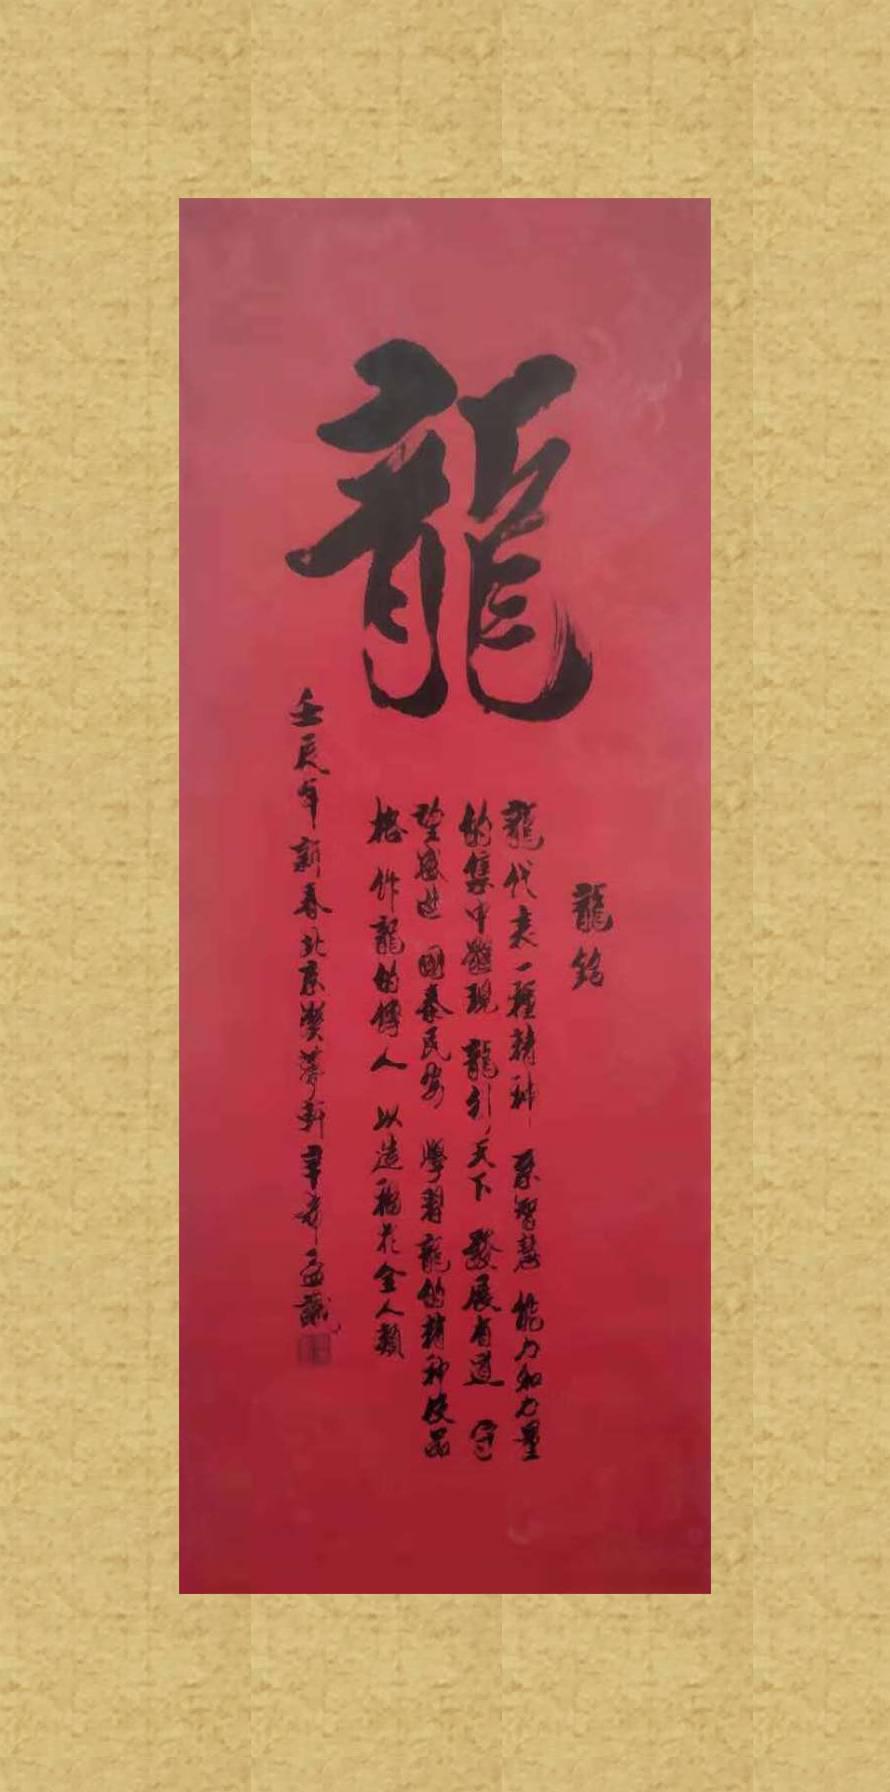 龍
龍銘
龍代表一種精神 系智慧 能力和力量
的集中體現 龍引天下 發展有道
望盛世 國泰民安 學習龍的精神 品
格 作龍的傳人 以造福於全人類
壬辰年新春北京 夢軒 識